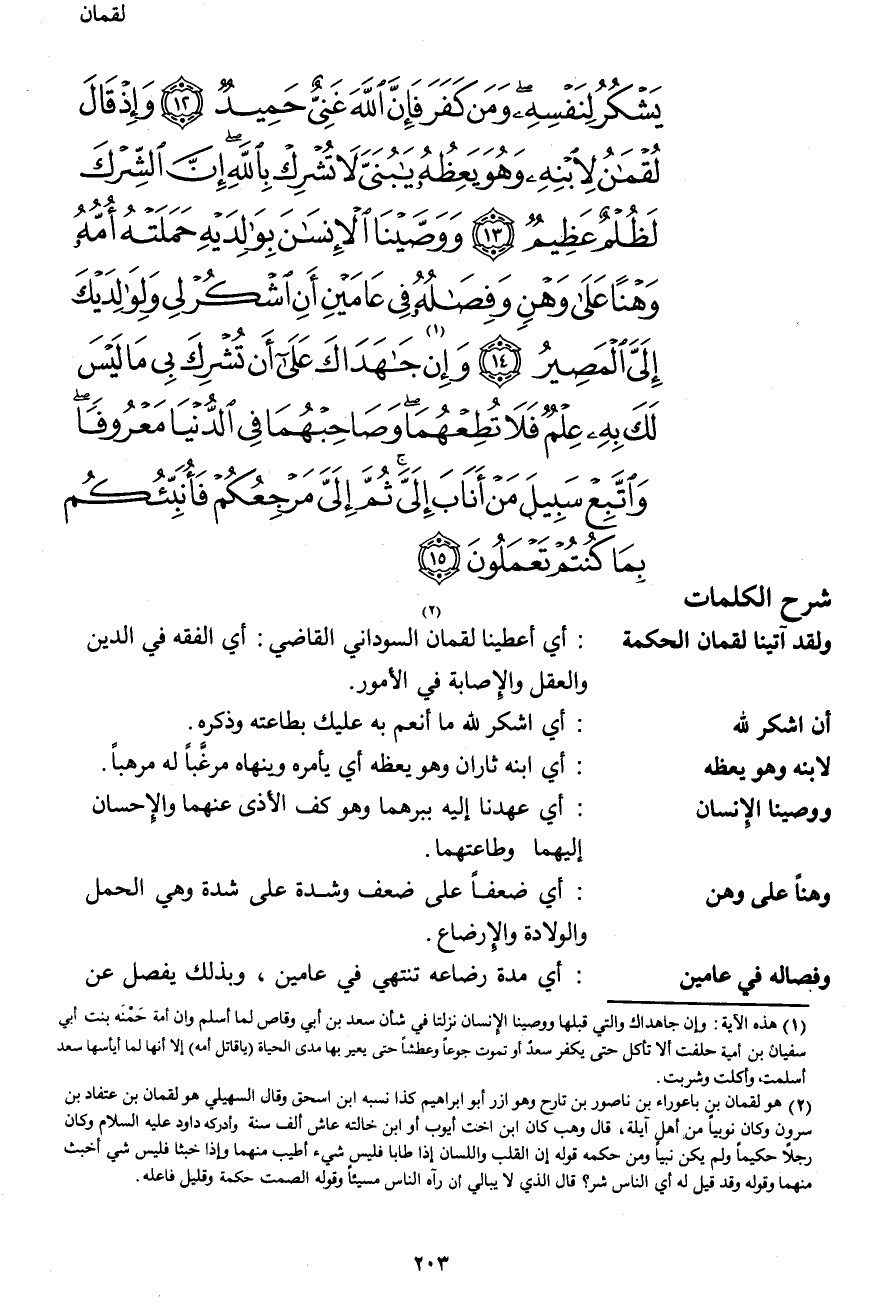 لقمان
يَشْكُرُ لِنَفْسِهِۦۖ وَمَن كَفَرَ فَإِنَّ ٱللَّهَ غَنِىٌّ حَمِيدٌ ١٢ وَإِذْ قَالَ
لُقْمَٰنُ لِٱبْنِهِۦ وَهُوَ يَعِظُهُۥ يَٰبُنَىَّ لَا تُشْرِكْ بِٱللَّهِۖ إِنَّ ٱلشِّرْكَ
لَظُلْمٌ عَظِيمٌ ١٣ وَوَصَّيْنَا ٱلْإِنسَٰنَ بِوَٰلِدَيْهِ حَمَلَتْهُ أُمُّهُۥ
وَهْنًا عَلَىٰ وَهْنٍ وَفِصَٰلُهُۥ فِى عَامَيْنِ أَنِ ٱشْكُرْ لِى وَلِوَٰلِدَيْكَ
إِلَىَّ ٱلْمَصِيرُ ١٤ وَإِن (١) جَٰهَدَاكَ عَلَىٰٓ أَن تُشْرِكَ بِى مَا لَيْسَ
لَكَ بِهِۦ عِلْمٌ فَلَا تُطِعْهُمَاۖ وَصَاحِبْهُمَا فِى ٱلدُّنْيَا مَعْرُوفًاۖ
وَٱتَّبِعْ سَبِيلَ مَنْ أَنَابَ إِلَىَّۚ ثُمَّ إِلَىَّ مَرْجِعُكُمْ فَأُنَبِّئُكُم
بِمَا كُنتُمْ تَعْمَلُونَ ١٥
شرح الكلمات
ولقد آتينا لقمان الحكمة : أي أعطينا لقمان السوداني (٢) القاضي : أي الفقه في الدين
والعقل والإصابة في الأمور.
أن اشكر لله : أي اشكر لله ما أنعم به عليك بطاعته وذكره.
لابنه وهو يعظه : أي ابنه ثاران وهو يعظه أي يأمره وينهاه مرغَّباً له مرهباً.
ووصينا الإنسان : أي عهدنا إليه ببرهما وهو كف الأذى عنهما والإحسان
إليهما وطاعتهما.
وهناً على وهن : أي ضعفاً على ضعف وشدة على شدة وهي الحمل
والولادة والإرضاع.
وفصاله في عامين : أي مدة رضاعه تنتهي في عامين ، وبذلك يفصل عن
(١) هذه الآية : وإن جاهداك والتي قبلها ووصينا الإنسان نزلتا في شأن سعد بن أبي وقاص لما أسلم وان أمة حَمْنَه بنت أبي
سفيان بن أمية حلفت ألا تأكل حتى يكفر سعدٌ أو تموت جوعاً وعطشاً حتى يعير بها مدى الحياة (ياقاتل أمه) إلا أنها لما أيأسها سعد
أسلمت وأكلت وشربت.
(٢) هو لقمان بن باعوراء بن ناصور بن تارح وهو ازر أبو ابراهيم كذا نسبه ابن اسحق وقال السهيلي هو لقمان بن عتفاد بن
سرون وكان نوبياً من أهل آيلة، قال وهب كان ابن اخت أيوب أو ابن خالته عاش ألف سنة وأدركه داود عليه السلام وكان
رجلاً حكيماً ولم يكن نبياً ومن حكمه قوله إن القلب واللسان إذا طابا فليس شيء أطيب منهما وإذا خبثا فليس شي أخبث
منهما وقوله وقد قيل له أي الناس شر؟ قال الذي لا يبالي أن رآه الناس مسيئاً وقوله الصمت حكمة وقليل فاعله.
٢٠٣